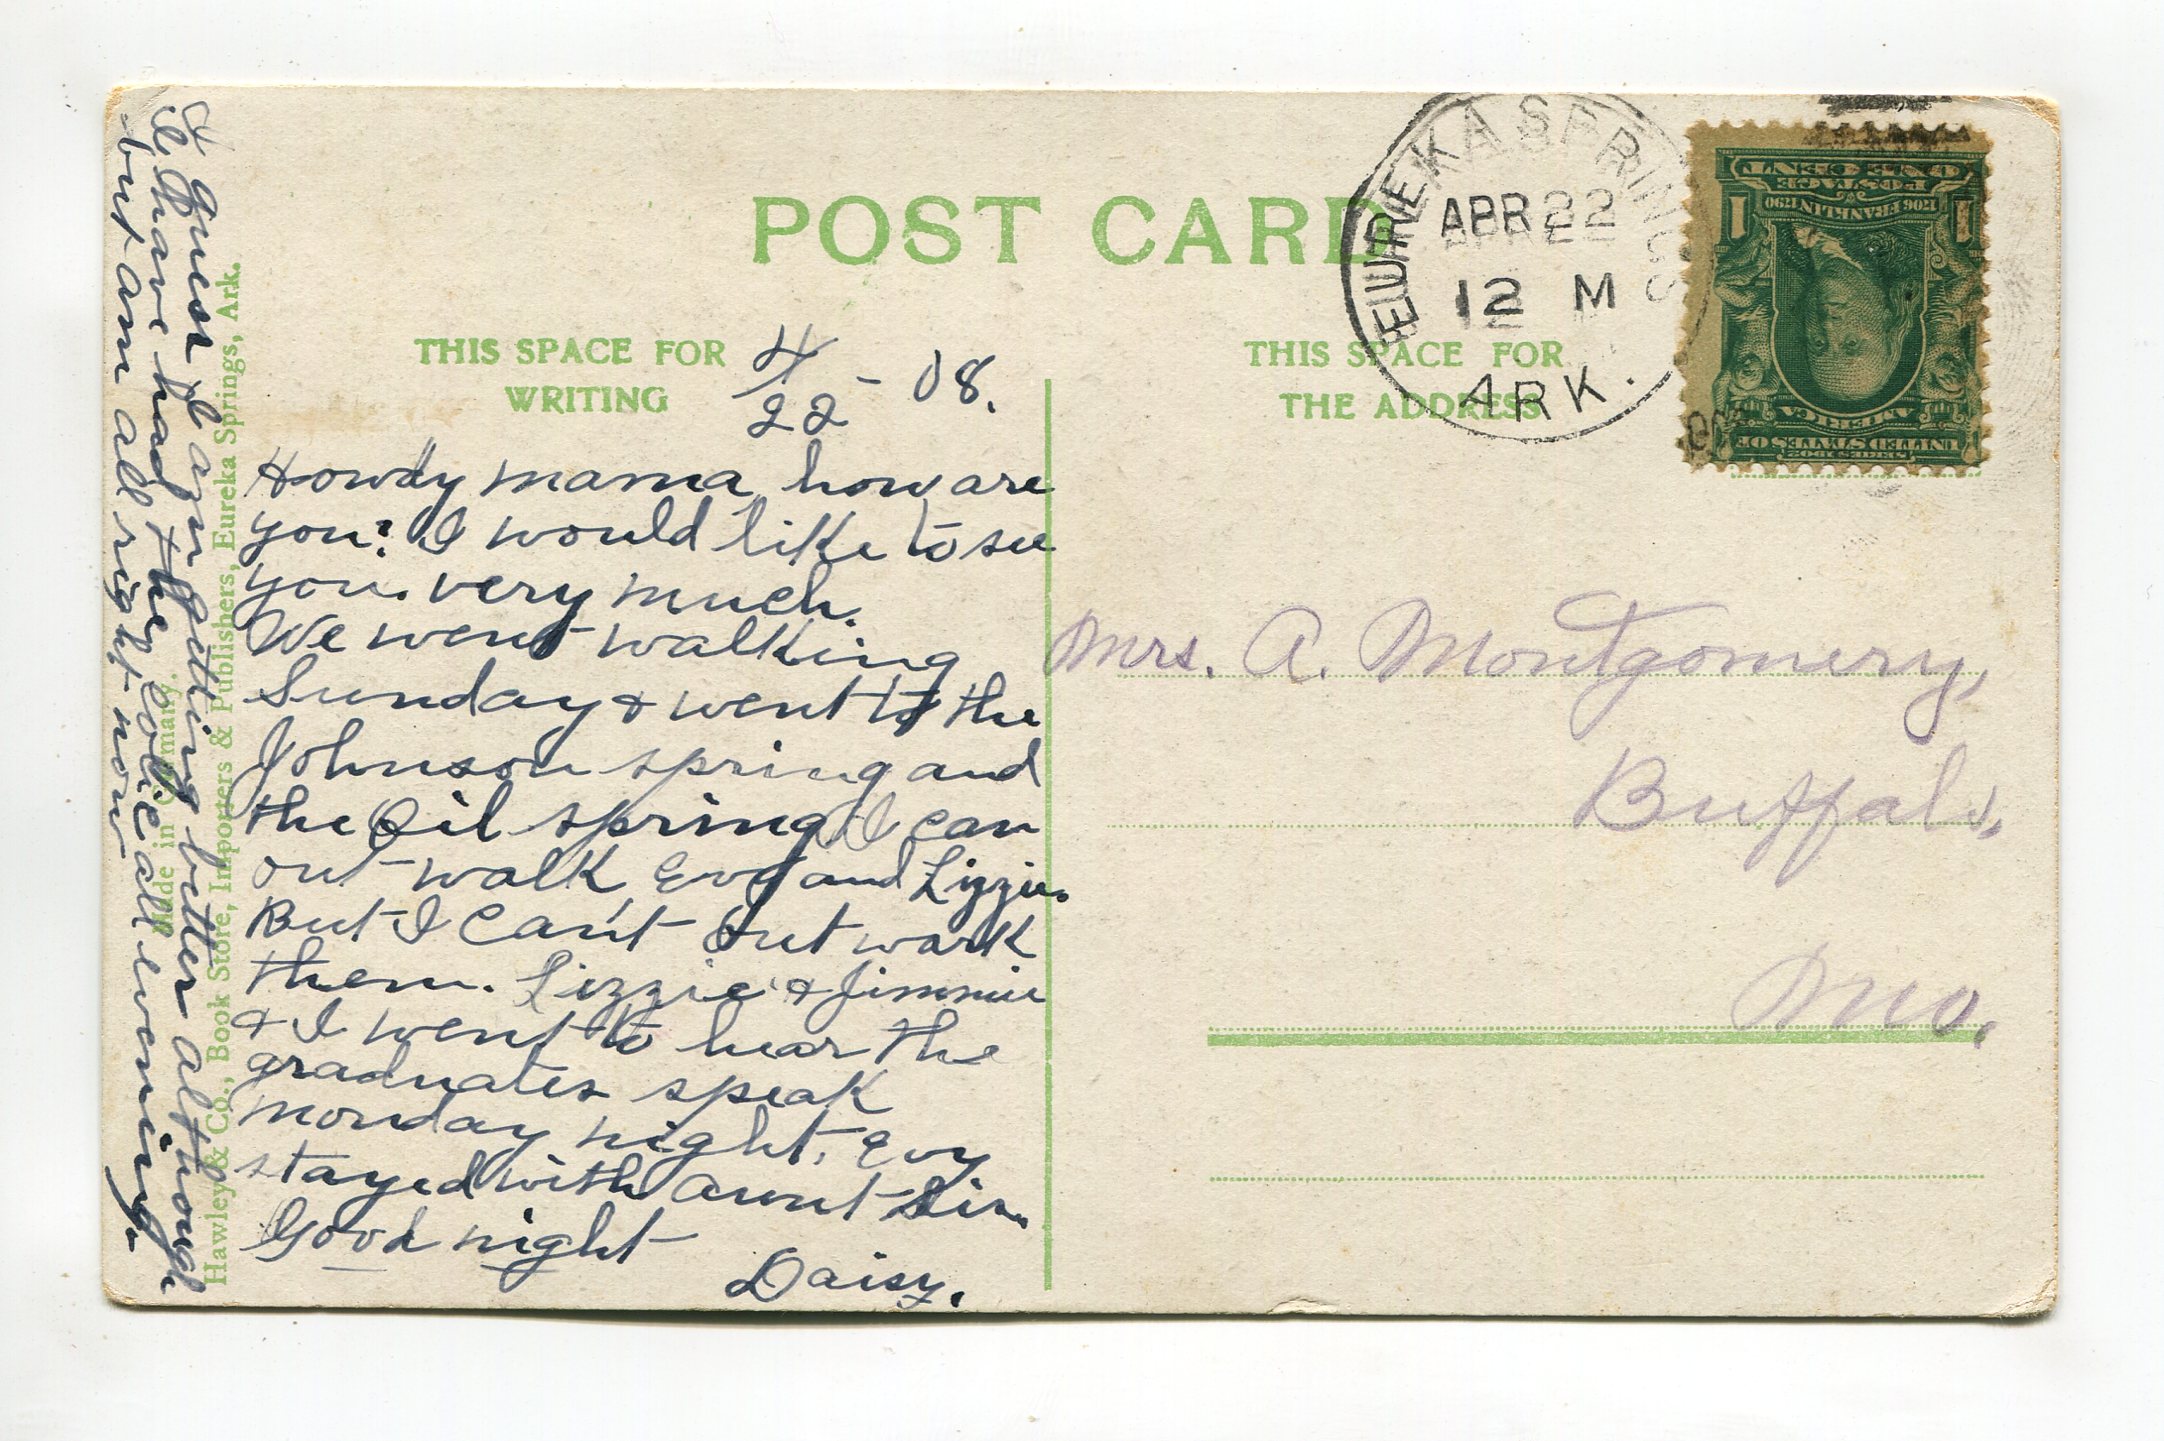 POST CARD
THIS SPACE FOR
WRITING
THIS SPACE FOR
THE ADDRESS
EUREKA SPRINGS
APR 22
12 M
ARK.
ONE CENT
POSTAGE
1706 FRANKLIN 1790
1 1
AMERICA
UNITED STATES OF
SERIES 1902
4/22 - 08.
Howdy mama, how are
you? I would like to see
you very much.
We went walking
Sunday & went to the
Johnson spring and
the Oil spring I can
out walk Evy and Lizzie.
But I can't out work
them. Lizzie & Jimmie
& I went to hear the
graduates speak
Monday night, Evy
stayed with Aunt
Good night
Daisy.
I guess I am getting better although
I have had the colic all evening.
but am all right now
Made in Germany.
Hawley & Co., Book Store, Importers & Publishers, Eureka Springs, Ark.
Mrs. A. Montgomery,
Buffalo,
Mo.